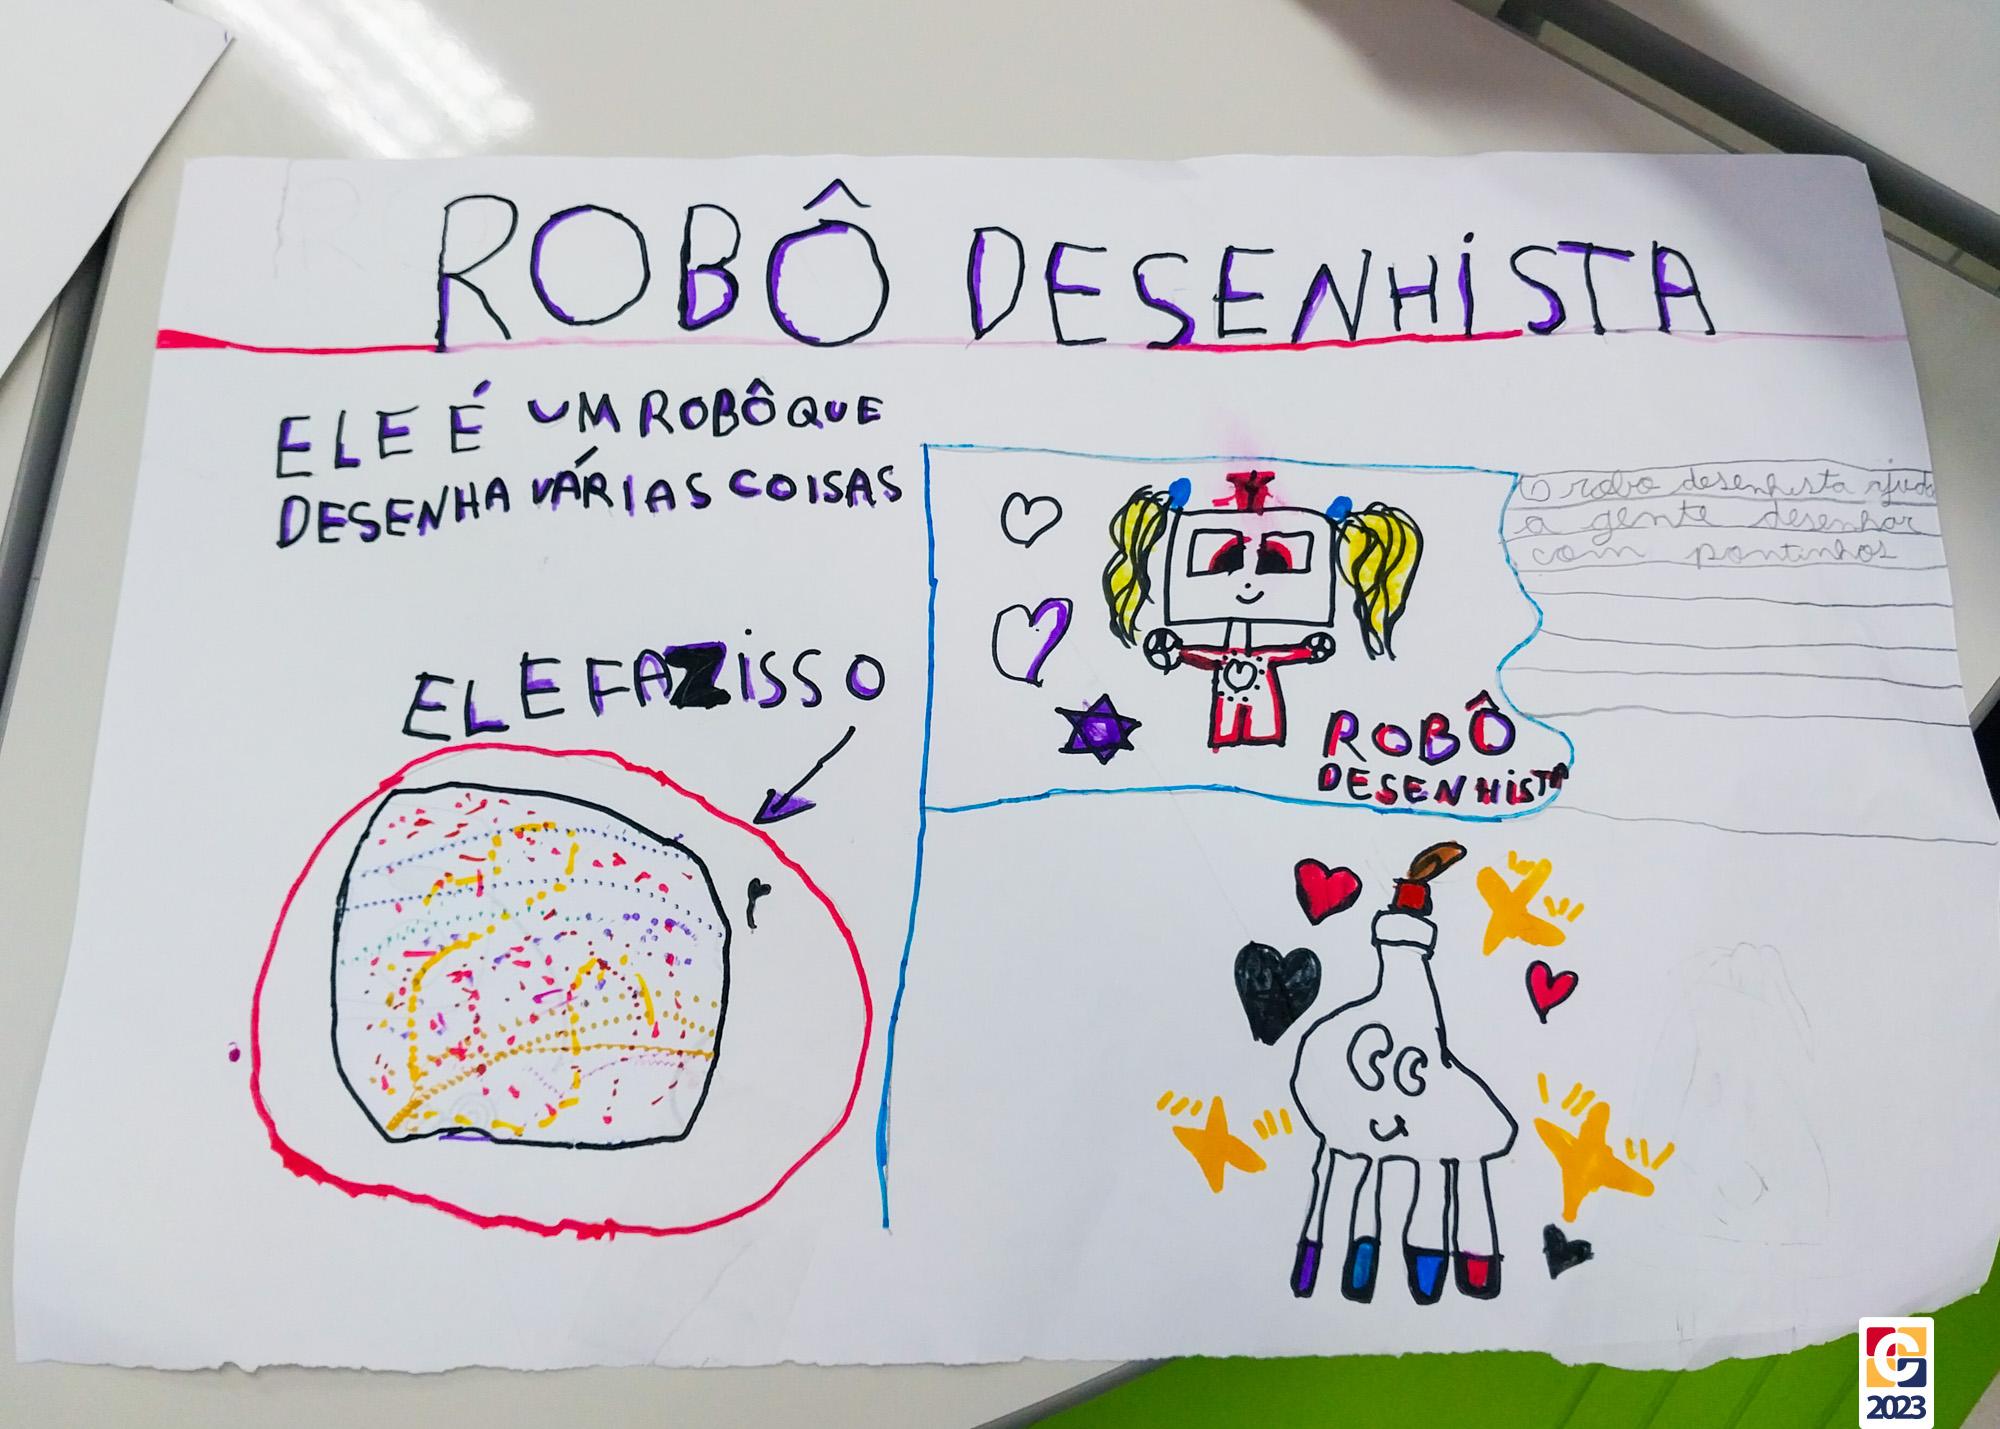 ROBÔ DESENHISTA
ELE É UM ROBÔ QUE
DESENHA VÁRIAS COISAS
ELE FAZ ISSO
ROBÔ
DESENHISTA
O robo desenhista ajuda
a gente desenhar
com pontinhos
2023